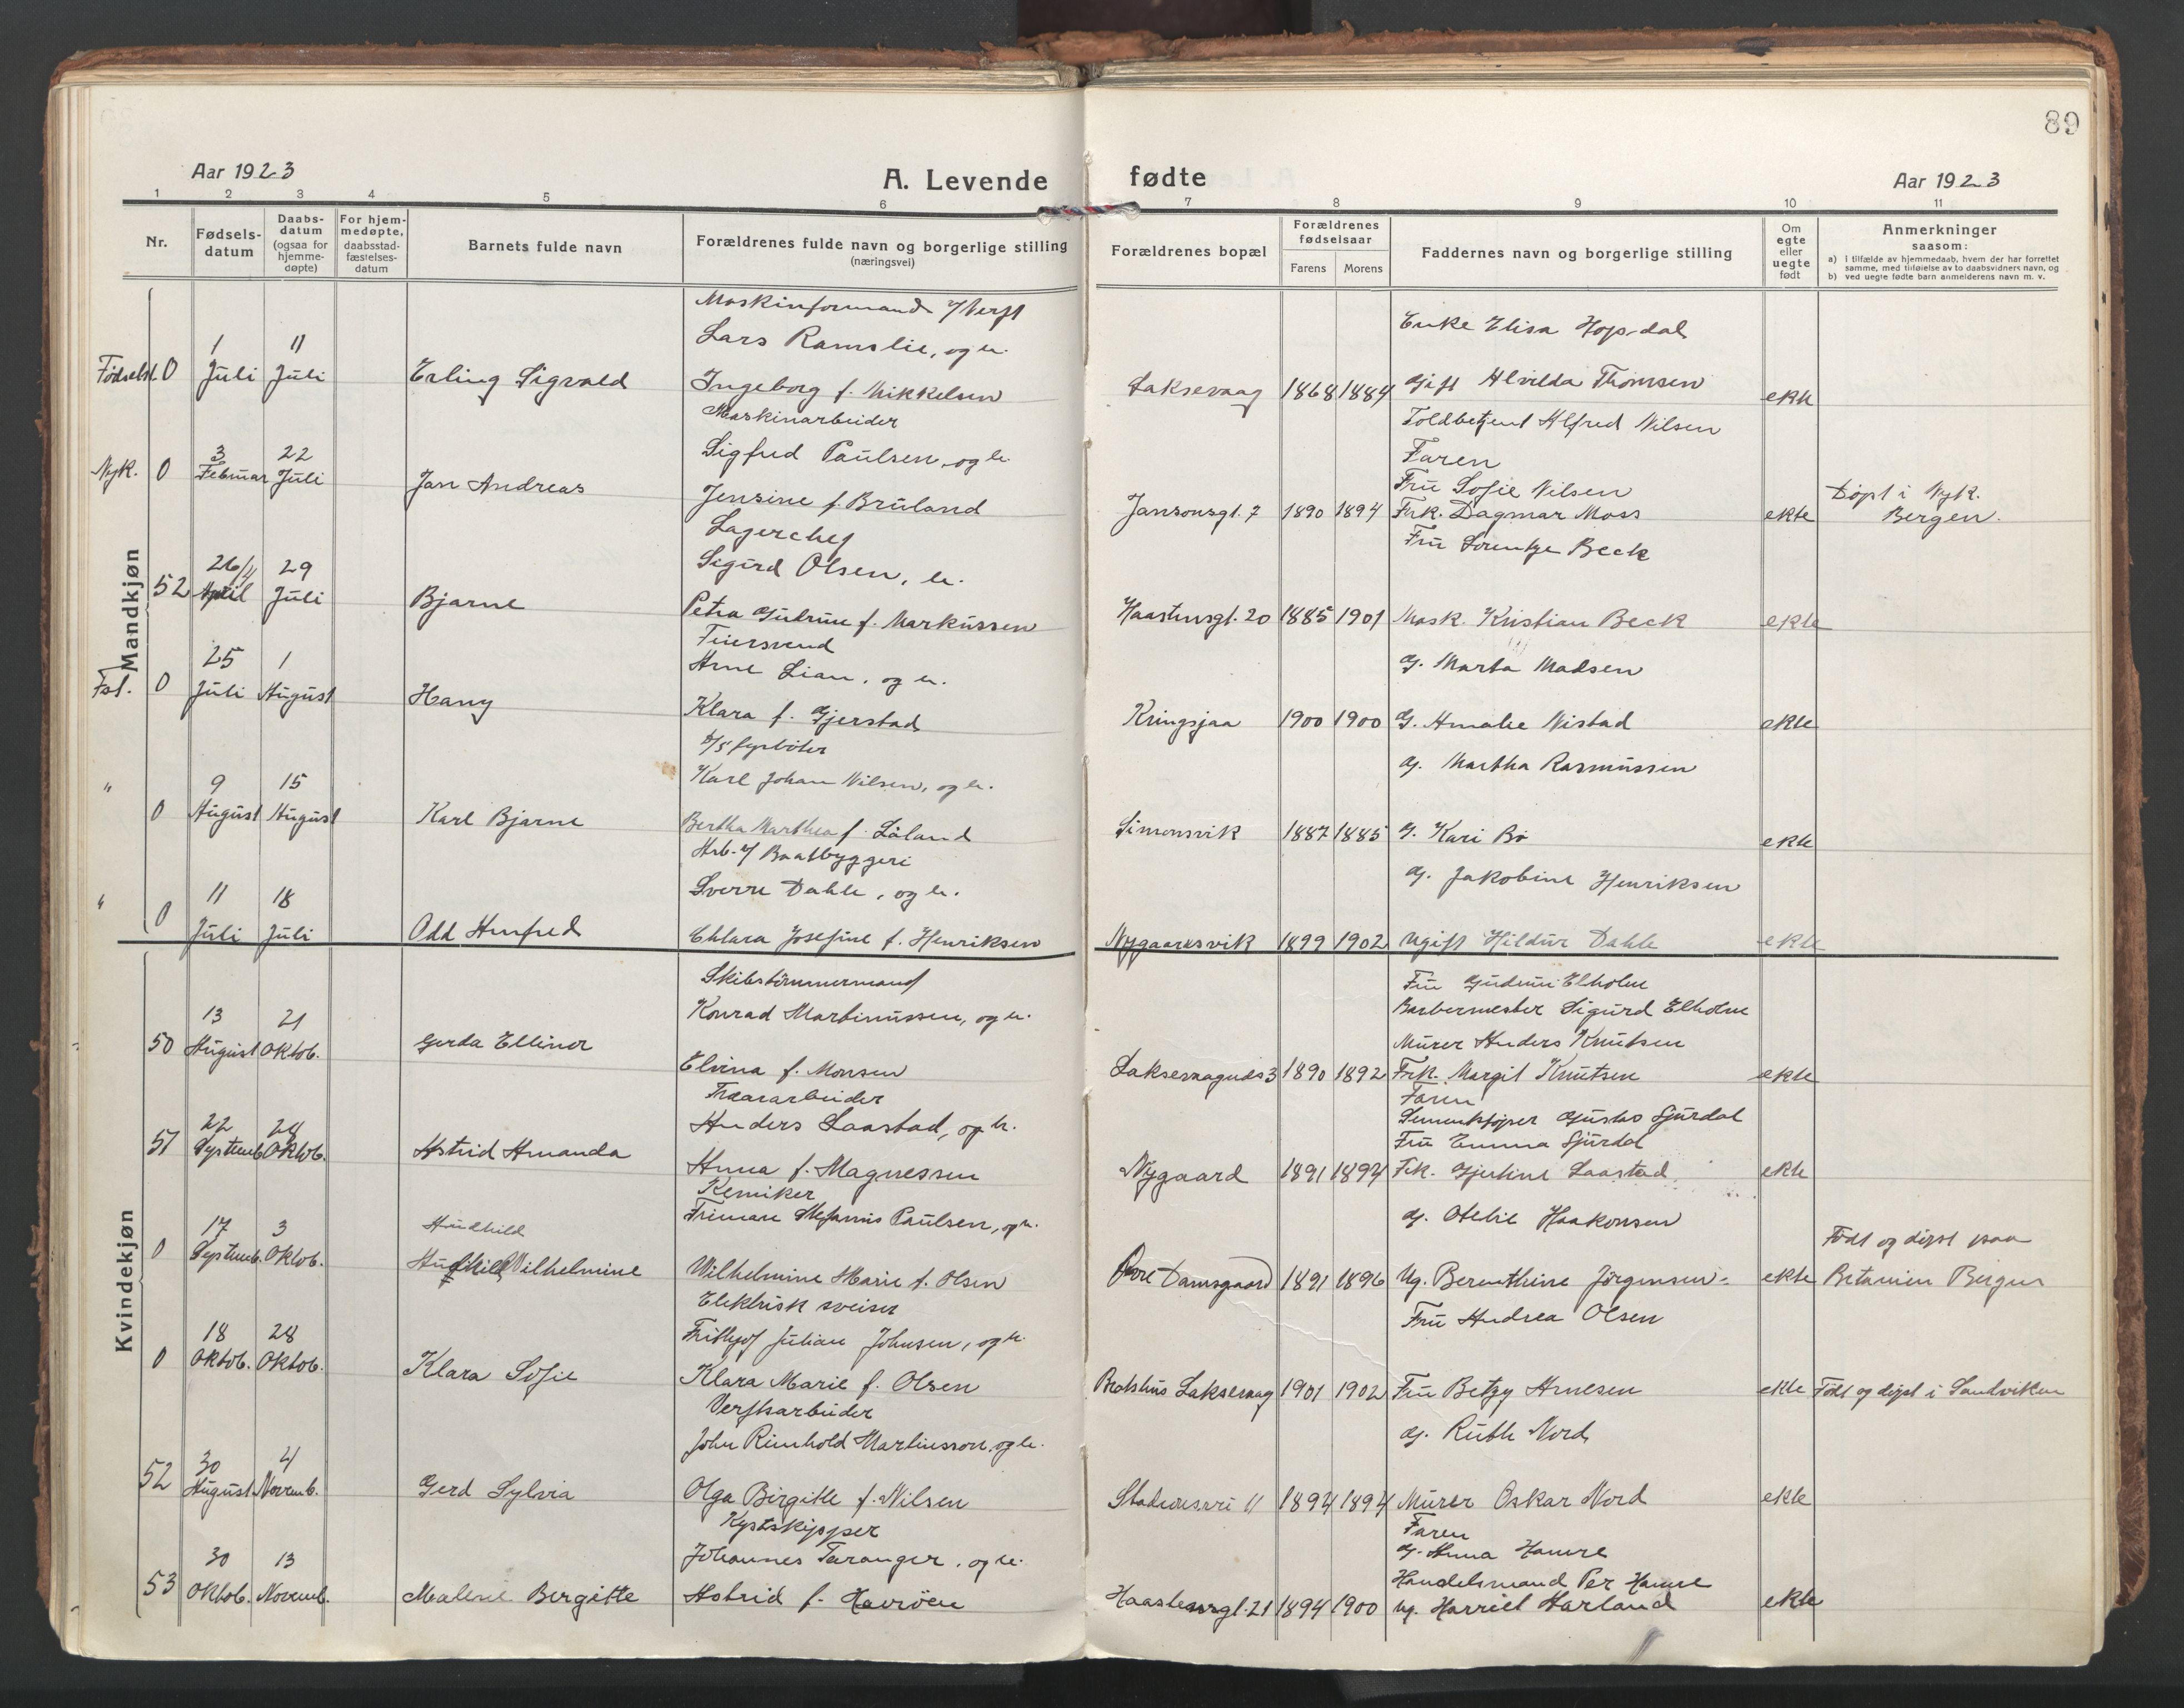 89
Aar 1923
A. Levende
fødte
Aar 1923
1 2 3 4 5 6 7 8 9 10 11
Nr.
Fødselsdatum
Daabsdatum (ogsaa for hjemmedøpte)
For hjemmedøpte, daabsstadfæstelsesdatum
Barnets fulde navn
Forældrenes fulde navn og borgerlige stilling
(næringsvei)
Forældrenes bopæl
Forældrenes fødselsaar
Farens Morens
Faddernes navn og borgerlige stilling
Om egte eller uegte født
Anmerkninger
saasom:
a) I tilfælde av hjemmedaab, hvem der har forrettet samme, med tilføielse av to daabsvidners navn, og
b) ved uegte fødte barn anmelderens navn m. v.
Mandkjøn
Maskinformand v/ Verft
Fødselst. 0 1 Juli 11 Juli Erling Sigvald
Lars Ramslie, og h.
Ingeborg f. Mikkelsen
Laksevaag 1868 1884
Enke Elisa Hopsdal
Gift Alvilda Thomsen
Toldbetjent Alfred Nilsen
ekte
Maskinarbeider
Nyk. 0 3 Februar 22 Juli Jan Andreas
Sigfred Paulsen, og h.
Jensine f. Bruland
Jansonsgt. 7 1890 1894
Faren
Fru Sofie Nilsen
Frk. Dagmar Moss
Fru Lorentze Beck
ekte
Døpt i Nyk.
Bergen.
Lagerchef
52 26/4 April 29 Juli Bjarne
Sigurd Olsen, h.
Petra Gudrun f. Markussen
Haastensgt. 20 1885 1901
Mask. Kristian Beck
g. Marta Madsen
ekte
Feiersvend
Fst. 0 25 Juli 1 August Harry
Arne Lian, og h.
Klara f. Gjerstad
Kringsjaa 1900 1900
G. Amalie Nistad
g. Martha Rasmussen
ekte
D/S fyrbøter
" 0 9 August 15 August Karl Bjarne
Karl Johan Nilsen, og h.
Bertha Marthea f. Låland
Simonsvik 1887 1885
G. Kari Bø
g. Jakobine Henriksen
ekte
Arb. v/ Baatbyggeri
" 0 11 Juli 18 Juli Odd Arnfred
Sverre Dahle, og h.
Chlara Josefine f. Henriksen
Nygaardsvik 1899 1902
Ugift Hildur Dahle
ekte
Kvindekjøn
Skibstømmermand
50 13 August 21 Oktob. Gerda Ellinor
Konrad Martinussen, og h.
Elvina f. Monsen
Laksevaagnds 3 1890 1892
Fru Gudrun Elholm
Barbermester Sigurd Elholm
Murer Anders Knutsen
Frk. Margit Knutsen
ekte
Traavarbeider
51 22 Septemb. 28 Oktob. Astrid Amanda
Anders Laastad, og h.
Anna f. Magnessen
Nygaard 1891 1894
Faren
Sementstøper Gustav Gjurdal
Fru Emma Gjurdal
Frk. Gjertine Laastad
g. Otelie Haakonsen
ekte
Kemiker
0 17 Septemb. 3 Oktob. Audhild
Audhild Wilhelmine
Friman Stefanus Paulsen, og h.
Wilhelmine Marie f. Olsen
Øvre Damsgaard 1891 1896
Ug. Berenthine Jørgensen
Fru Andrea Olsen
ekte
Født og døpt paa
Betanien Bergen
Elektrisk sveiser
0 18 Oktob. 28 Oktob. Klara Sofie
Frithjof Julian Johnsen, og h.
Klara Marie f. Olsen
Bratshus Laksevaag 1901 1902
Fru Betzy Arnesen
g. Ruth Nord
ekte
Født og døpt i Sandviken
Verftsarbeider
52 30 August 4 Novemb. Gerd Sylvia
John Reinhold Martinsson, og h.
Olga Birgitte f. Nilsen
Stadionsvei 11 1894 1894
Murer Oskar Nord
ekte
Kystskipper
53 30 Oktob. 13 Novemb. Malene Bergitte
Johannes Taranger, og h.
Astrid f. Havrøen
Haastensgt. 21 1894 1900
Faren
g. Anna Hamre
Handelsmand Per Hamre
ug. Harriet Harland
ekte